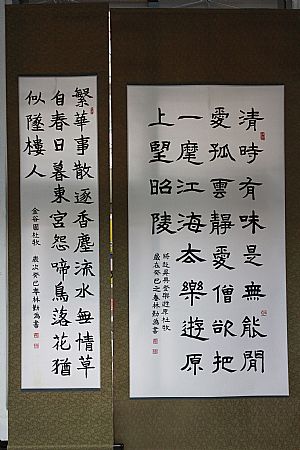 清時有味是無能閒
愛孤雲靜愛僧欲把
一麾江海去樂遊原
上望昭陵
將赴吳興登樂遊原杜牧
歲在癸巳之春林勤為書
繁華事散逐香塵流水無情草
自春日暮東風怨啼鳥落花猶
似墜樓人
金谷園杜牧 歲次癸巳春林勤為書